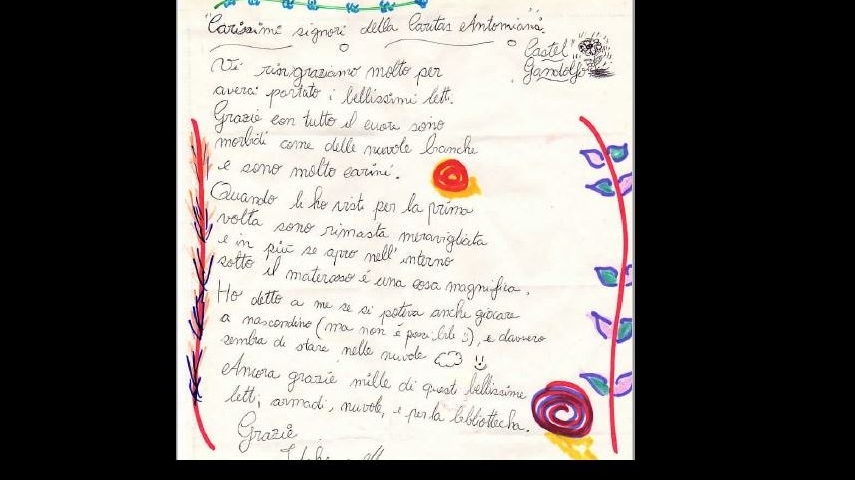 "Carissimi signori della Caritas Antoniana"
Castel
Gandolfo
Vi ringraziamo molto per
averci portato i bellissimi letti.
Grazie con tutto il cuore sono
morbidi come delle nuvole bianche
e sono molto carini.
Quando li ho visti per la prima
volta sono rimasta meravigliata
e in più se apro nell'interno
sotto il materasso é una cosa magnifica.
Ho detto a me se si poteva anche giocare
a nascondino (ma non é possibile :)), e davvero
sembra di stare nelle nuvole
Ancora grazie mille di questi bellissimi
letti, armadi, nuvole, e per la bibliottecha.
Grazie